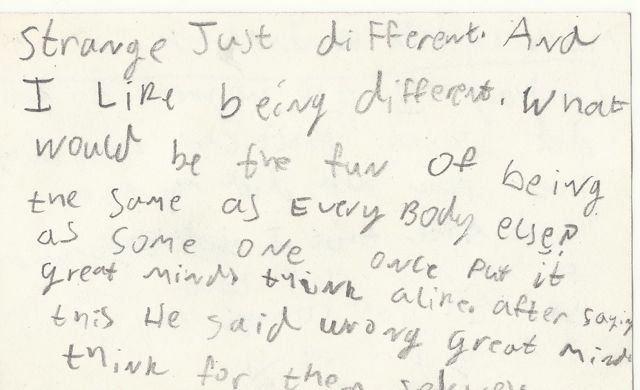 Strange Just different. And
I Like being different. What
would be the fun of being
the same as Every Body else?
as some one once put it
great minds think alike. after saying
this He said wrong great minds
think for them selves